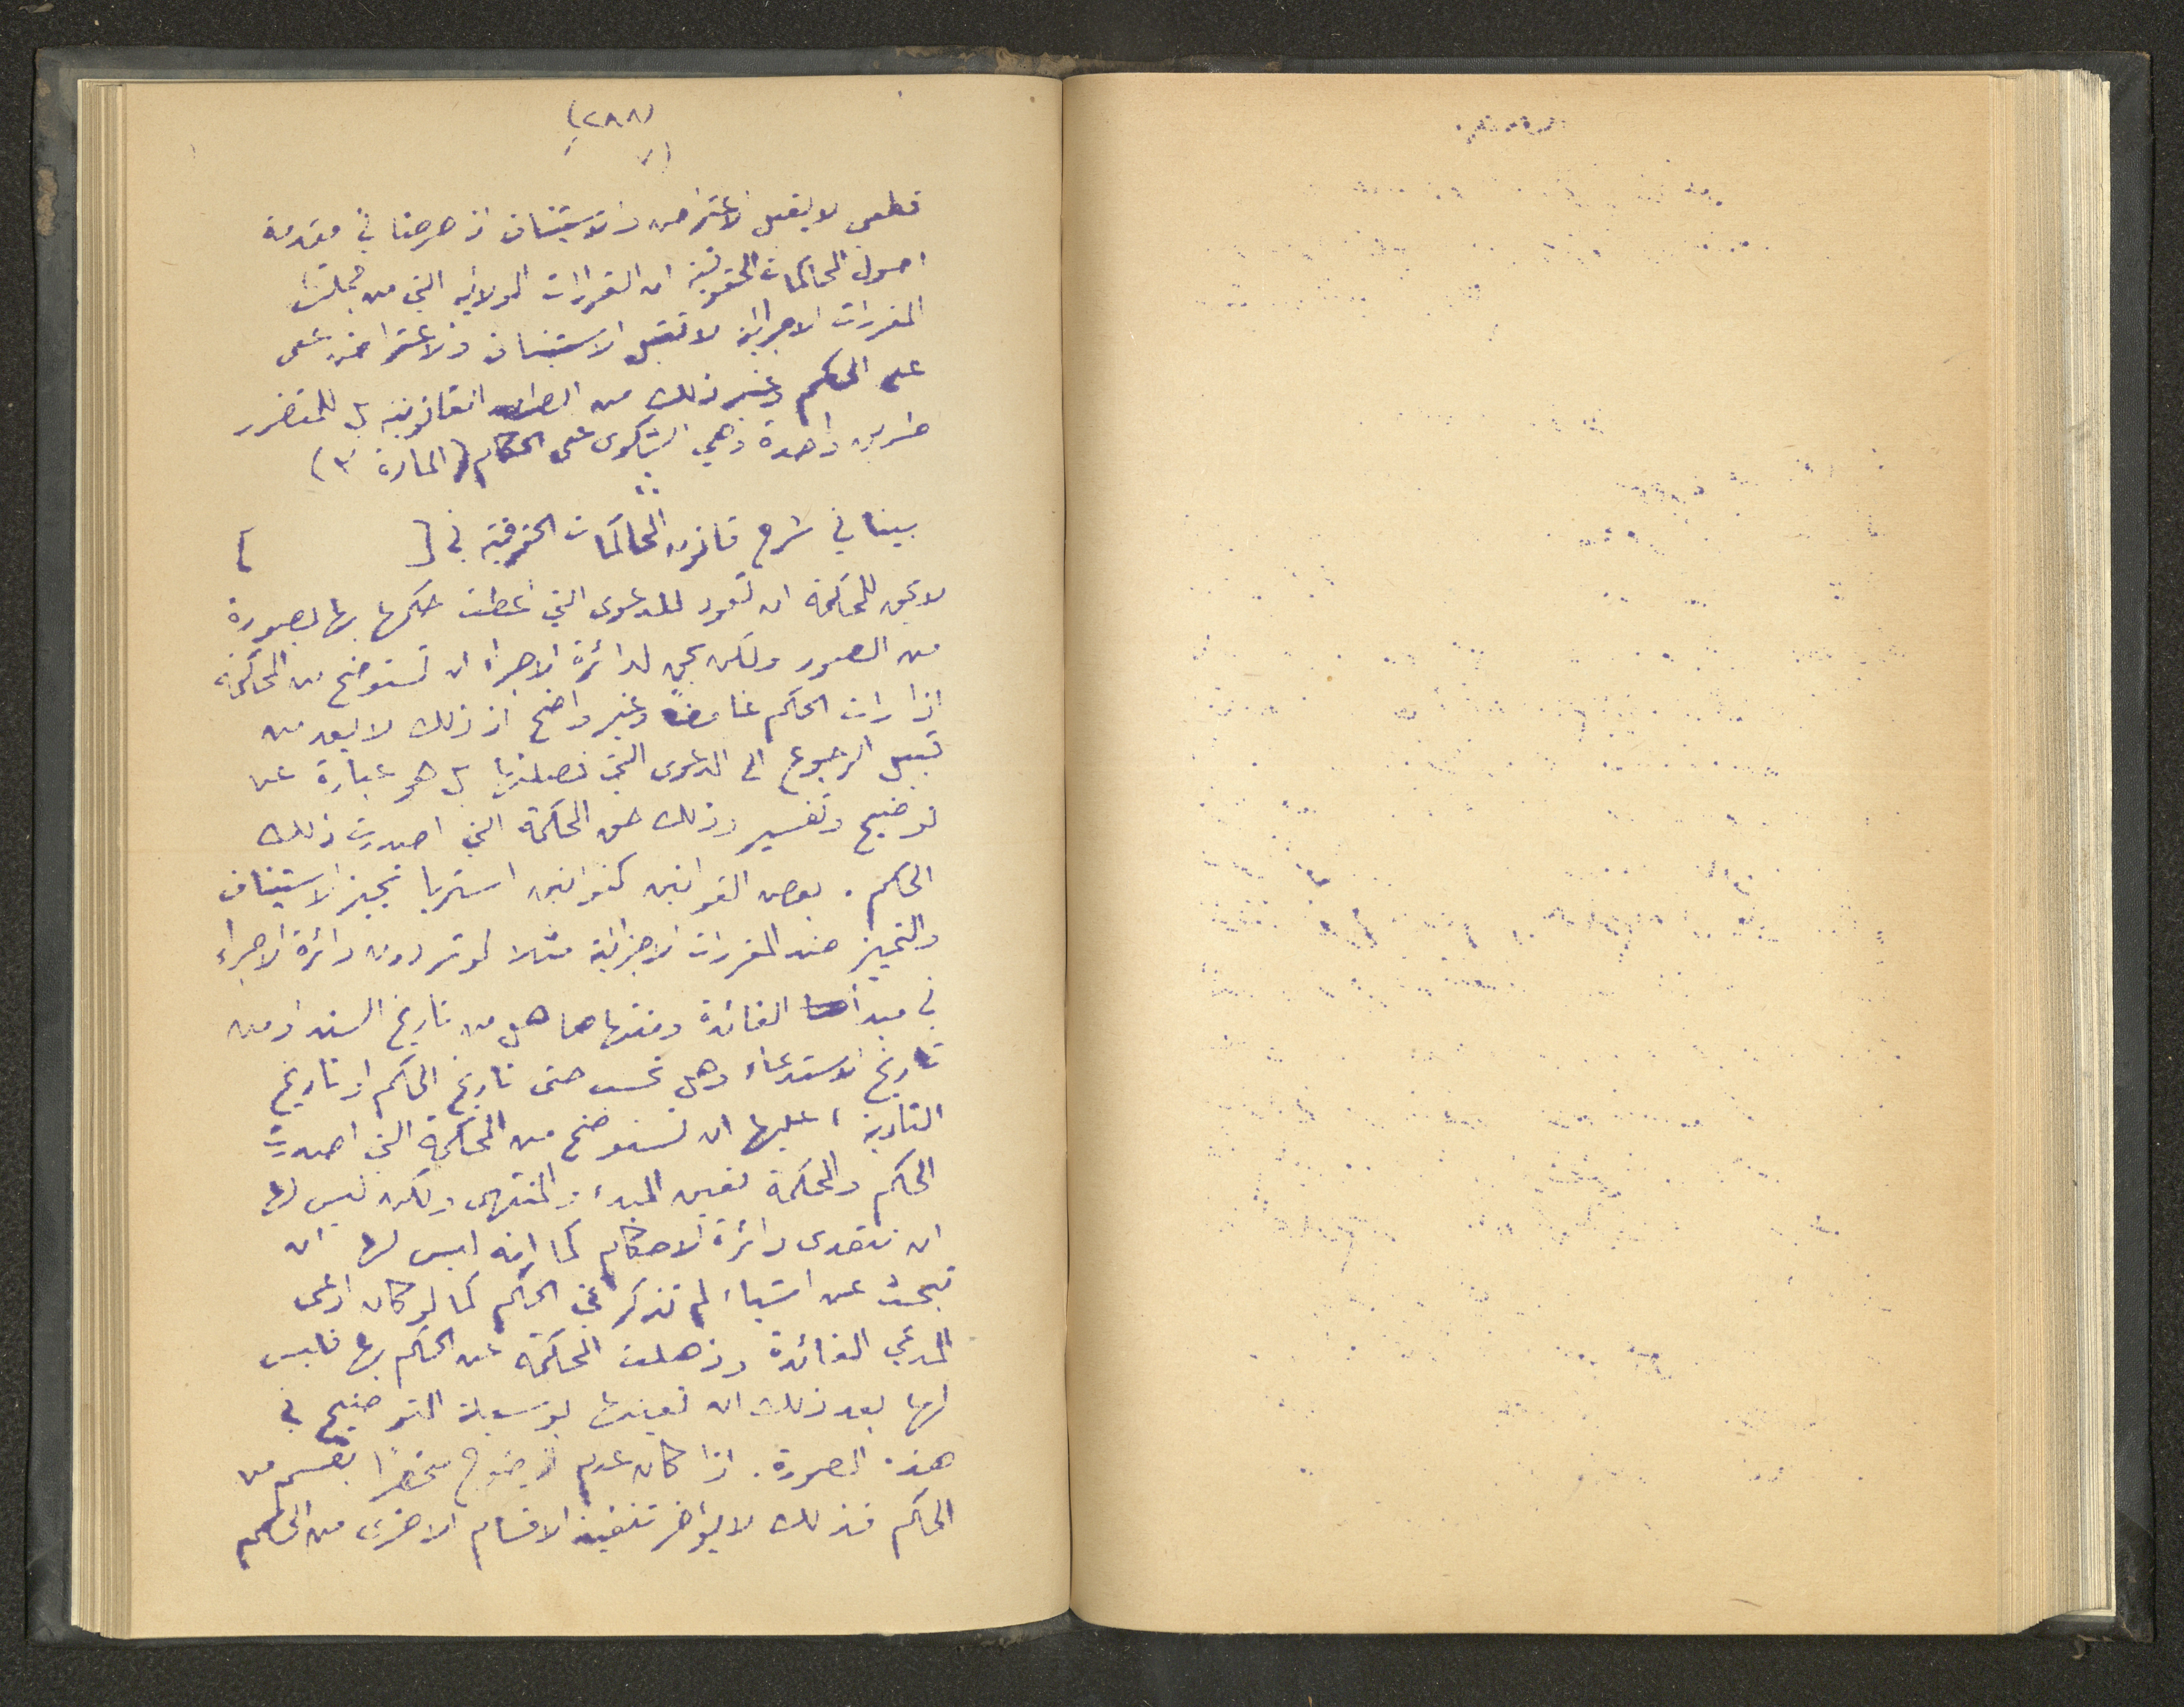 (٢٨٨)
(٧
قطعى لا يقبل الاعتراض والاستيناف اذ صرحنا في مقدمة
اصول المحاكمات الحقوقية ان القرارات الولائيه التي من جملتها
المقررات الاجرائية لا تقبل الاستيناف والاعتراض على
على الحكم وغير ذلك من الطرائق القانونية بل للمتضرر
طريق واحدة وهي الشكوى على الحكام (المادة ٣)
بينا في شرح قانون المحاكمات الحقوقية في [ ]
لا يحق للمحاكمة ان تعود للدعوى التي اعطت حكمها بها بصورة
من الصور ولكن يحق لدائرة الاجراء ان تستوضح من المحاكمة
اذا رات الحكم غامضاً وغير واضح اذ ذلك لا يعد من
قبيل الرجوع الى الدعوى التي فصلتها بل هو عبارة عن
توضيح وتفسير وذلك حق المحكمة التي اصدرت ذلك
الحكم . بعض القوانين كقوانين استريا تجيز الاستيناف
والتمييز ضد المقررات الاجرائية مثلا لو ترددت دائرة الاجراء
في مبدأ الفائدة ومنتهاها هل من تاريخ السند او من
تاريخ الاستدعاء وهل تحسب حتى تاريخ الحكم او تاريخ
التادية ، عليها ان تستوضح من المحكمة التي اصدرت
الحكم والمحكمة تعين المبدء والمنتهى ولكن ليس لها
ان تتعدى دائرة الاحكام كما انه ليس لها ان
تبحث عن اشياء لم تذكر في الحكم كما لو كان ادعى
المدعي الفائدة وذهلت المحكمة عن الحكم بها فليس
لها بعد ذلك ان تعينها بوسيلة التوضيح في
هذه الصورة . اذا كان عدم الوضوح منحصراً بقسم من
الحكم فذلك لا يؤخر تنفيذ الاقسام الاخرى من الحكم